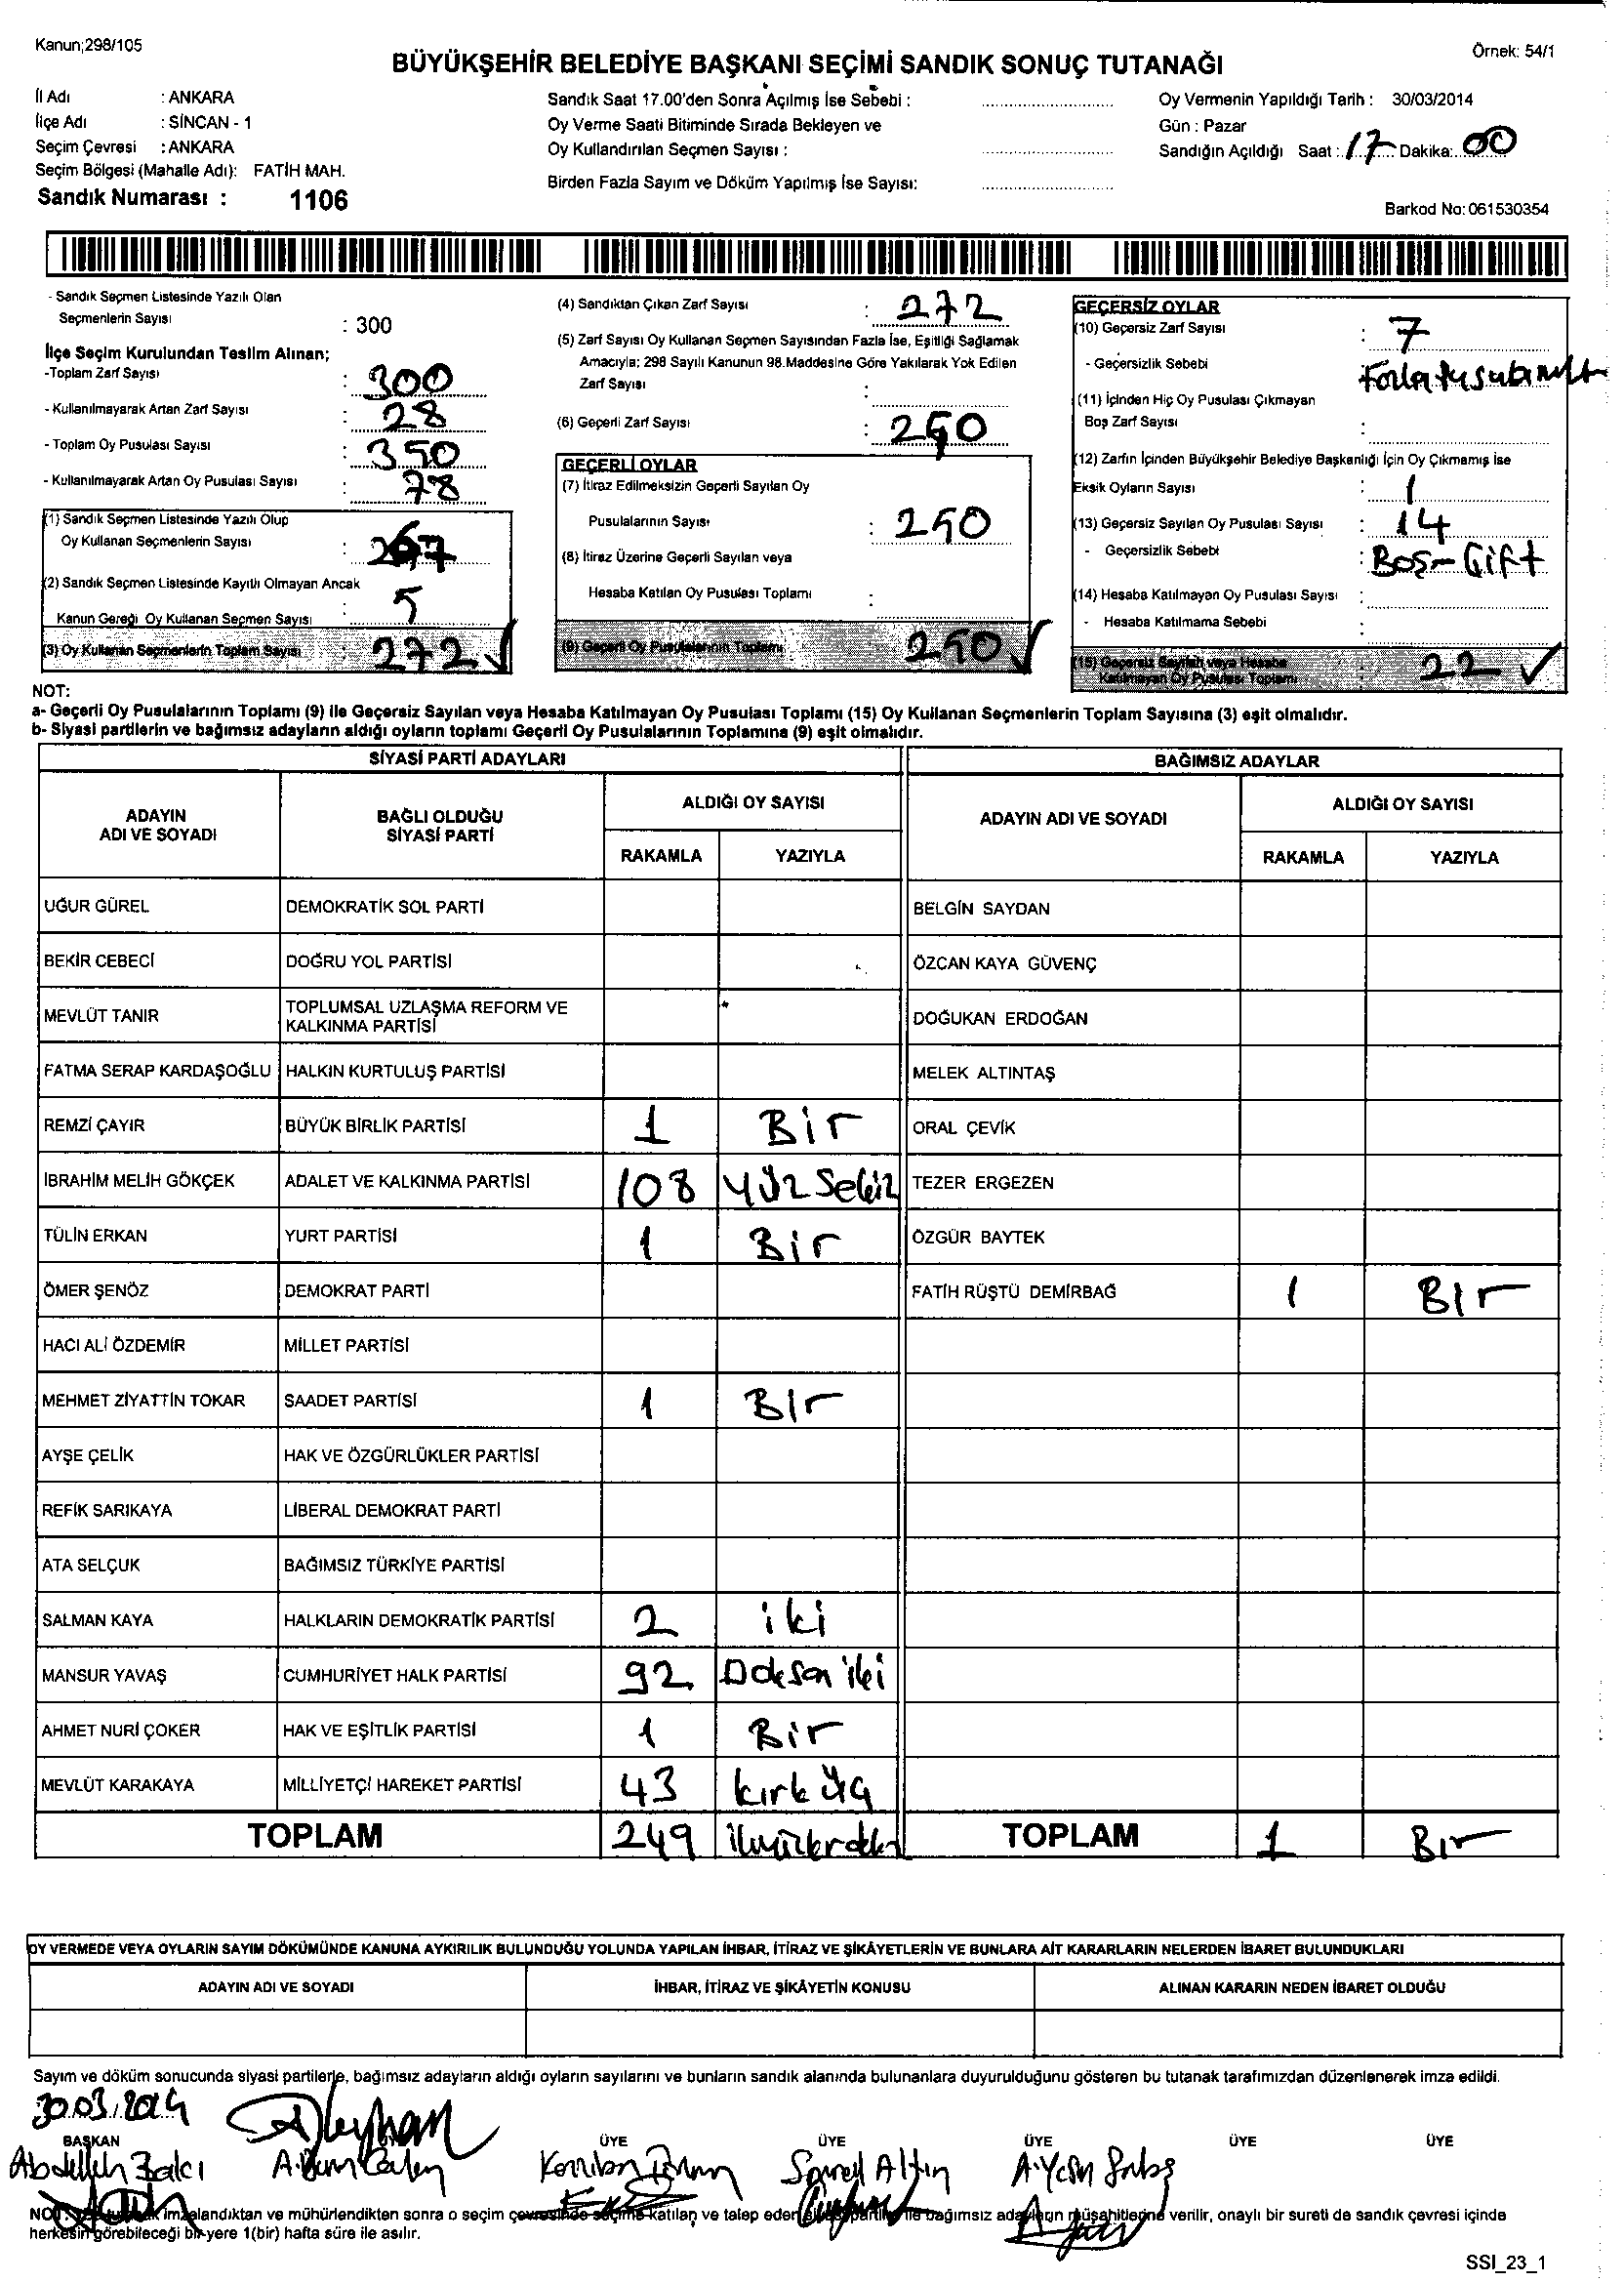 Kanun;298/105
Örnek: 54/1
BÜYÜKŞEHİR BELEDİYE BAŞKANI SEÇİMİ SANDIK SONUÇ TUTANAĞI
İl Adı : ANKARA
İlçe Adı : SİNCAN - 1
Seçim Çevresi : ANKARA
Seçim Bölgesi (Mahalle Adı): FATİH MAH.
Sandık Numarası : 1106
Sandık Saat 17.00'den Sonra Açılmış İse Sebebi :
Oy Verme Saati Bitiminde Sırada Bekleyen ve
Oy Kullandırılan Seçmen Sayısı :
Birden Fazla Sayım ve Döküm Yapılmış İse Sayısı:
Oy Vermenin Yapıldığı Tarih : 30/03/2014
Gün : Pazar
Sandığın Açıldığı Saat : 17 Dakika: 00
Barkod No: 061530354
- Sandık Seçmen Listesinde Yazılı Olan
Seçmenlerin Sayısı : 300
İlçe Seçim Kurulundan Teslim Alınan;
-Toplam Zarf Sayısı : 300
- Kullanılmayarak Artan Zarf Sayısı : 28
- Toplam Oy Pusulası Sayısı : 350
- Kullanılmayarak Artan Oy Pusulası Sayısı : 78
(1) Sandık Seçmen Listesinde Yazılı Olup
Oy Kullanan Seçmenlerin Sayısı : 267
(2) Sandık Seçmen Listesinde Kayıtlı Olmayan Ancak
Kanun Gereği Oy Kullanan Seçmen Sayısı : 5
(3) Oy Kullanan Seçmenlerin Toplam Sayısı : 272
(4) Sandıktan Çıkan Zarf Sayısı : 272
(5) Zarf Sayısı Oy Kullanan Seçmen Sayısından Fazla İse, Eşitliği Sağlamak
Amacıyla; 298 Sayılı Kanunun 98.Maddesine Göre Yakılarak Yok Edilen
Zarf Sayısı :
(6) Geçerli Zarf Sayısı : 250
GEÇERLİ OYLAR
(7) İtiraz Edilmeksizin Geçerli Sayılan Oy
Pusulalarının Sayısı : 250
(8) İtiraz Üzerine Geçerli Sayılan veya
Hesaba Katılan Oy Pusulası Toplamı :
(9) Geçerli Oy Pusulalarının Toplamı 250
GEÇERSİZ OYLAR
(10) Geçersiz Zarf Sayısı : 7
- Geçersizlik Sebebi :
(11) İçinden Hiç Oy Pusulası Çıkmayan
Boş Zarf Sayısı :
(12) Zarfın İçinden Büyükşehir Belediye Başkanlığı İçin Oy Çıkmamış İse
Eksik Oyların Sayısı : 1
(13) Geçersiz Sayılan Oy Pusulası Sayısı : 14
- Geçersizlik Sebebi : Boş-Çift
(14) Hesaba Katılmayan Oy Pusulası Sayısı :
- Hesaba Katılmama Sebebi :
(15) Geçersiz Sayılan veya Hesaba
Katılmayan Oy Pusulası Toplamı : 22
NOT:
a- Geçerli Oy Pusulalarının Toplamı (9) ile Geçersiz Sayılan veya Hesaba Katılmayan Oy Pusulası Toplamı (15) Oy Kullanan Seçmenlerin Toplam Sayısına (3) eşit olmalıdır.
b- Siyasi partilerin ve bağımsız adayların aldığı oyların toplamı Geçerli Oy Pusulalarının Toplamına (9) eşit olmalıdır.
SİYASİ PARTİ ADAYLARI
ADAYIN ADI VE SOYADI
BAĞLI OLDUĞU SİYASİ PARTİ
ALDIĞI OY SAYISI
RAKAMLA YAZIYLA
UĞUR GÜREL DEMOKRATİK SOL PARTİ
BEKİR CEBECİ DOĞRU YOL PARTİSİ
MEVLÜT TANIR TOPLUMSAL UZLAŞMA REFORM VE
KALKINMA PARTİSİ
FATMA SERAP KARDAŞOĞLU HALKIN KURTULUŞ PARTİSİ
REMZİ ÇAYIR BÜYÜK BİRLİK PARTİSİ 1 Bir
İBRAHİM MELİH GÖKÇEK ADALET VE KALKINMA PARTİSİ 108 Yüz Sekiz
TÜLİN ERKAN YURT PARTİSİ 1 Bir
ÖMER ŞENÖZ DEMOKRAT PARTİ
HACI ALİ ÖZDEMİR MİLLET PARTİSİ
MEHMET ZİYATTİN TOKAR SAADET PARTİSİ 1 Bir
AYŞE ÇELİK HAK VE ÖZGÜRLÜKLER PARTİSİ
REFİK SARIKAYA LİBERAL DEMOKRAT PARTİ
ATA SELÇUK BAĞIMSIZ TÜRKİYE PARTİSİ
SALMAN KAYA HALKLARIN DEMOKRATİK PARTİSİ 2 iki
MANSUR YAVAŞ CUMHURİYET HALK PARTİSİ 92 Doksan iki
AHMET NURİ ÇOKER HAK VE EŞİTLİK PARTİSİ 1 Bir
MEVLÜT KARAKAYA MİLLİYETÇİ HAREKET PARTİSİ 43 kırk üç
TOPLAM 249
BAĞIMSIZ ADAYLAR
ADAYIN ADI VE SOYADI
ALDIĞI OY SAYISI
RAKAMLA YAZIYLA
BELGİN SAYDAN
ÖZCAN KAYA GÜVENÇ
DOĞUKAN ERDOĞAN
MELEK ALTINTAŞ
ORAL ÇEVİK
TEZER ERGEZEN
ÖZGÜR BAYTEK
FATİH RÜŞTÜ DEMİRBAĞ 1 Bir
TOPLAM 1 Bir
OY VERMEDE VEYA OYLARIN SAYIM DÖKÜMÜNDE KANUNA AYKIRILIK BULUNDUĞU YOLUNDA YAPILAN İHBAR, İTİRAZ VE ŞİKÂYETLERİN VE BUNLARA AİT KARARLARIN NELERDEN İBARET BULUNDUKLARI
ADAYIN ADI VE SOYADI
İHBAR, İTİRAZ VE ŞİKÂYETİN KONUSU
ALINAN KARARIN NEDEN İBARET OLDUĞU
Sayım ve döküm sonucunda siyasi partilerle, bağımsız adayların aldığı oyların sayılarını ve bunların sandık alanında bulunanlara duyurulduğunu gösteren bu tutanak tarafımızdan düzenlenerek imza edildi.
30.03.2014
BAŞKAN ÜYE ÜYE ÜYE ÜYE ÜYE
Abdullah Balcı
NOT: imzalandıktan ve mühürlendikten sonra o seçim çevresinde seçime katılan ve talep eden siyasi partiler ile bağımsız adayların müşahitlerine verilir, onaylı bir sureti de sandık çevresi içinde
herkesin görebileceği bir yere 1(bir) hafta süre ile asılır.
SSI_23_1